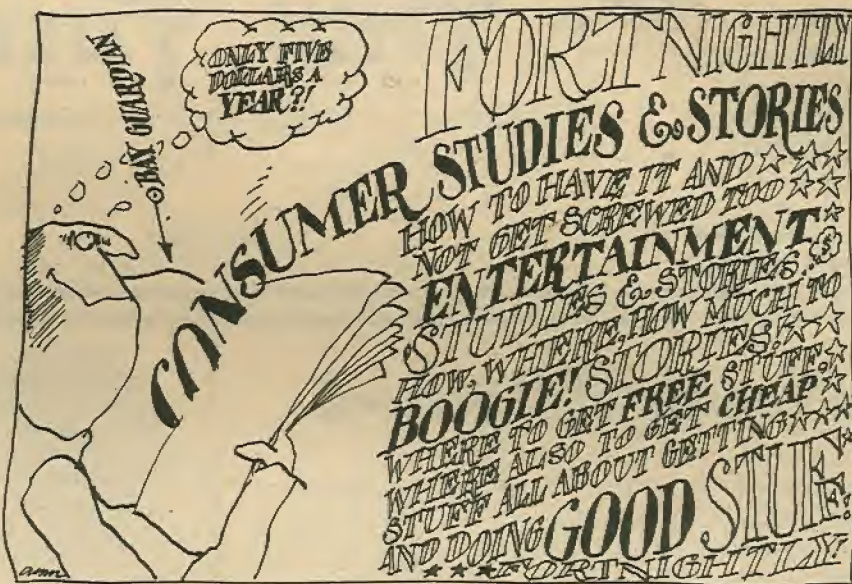 BAY GUARDIAN
ONLY FIVE
DOLLARS A
YEAR?!
FORTNIGHTLY
CONSUMER STUDIES & STORIES
HOW TO HAVE IT AND
NOT GET SCREWED TOO
ENTERTAINMENT
STUDIES & STORIES.
HOW, WHERE, HOW MUCH TO
BOOGIE! STORIES!
WHERE TO GET FREE STUFF,
WHERE ALSO TO GET CHEAP
STUFF ALL ABOUT GETTING
AND DOING GOOD STUFF!
FORTNIGHTLY!